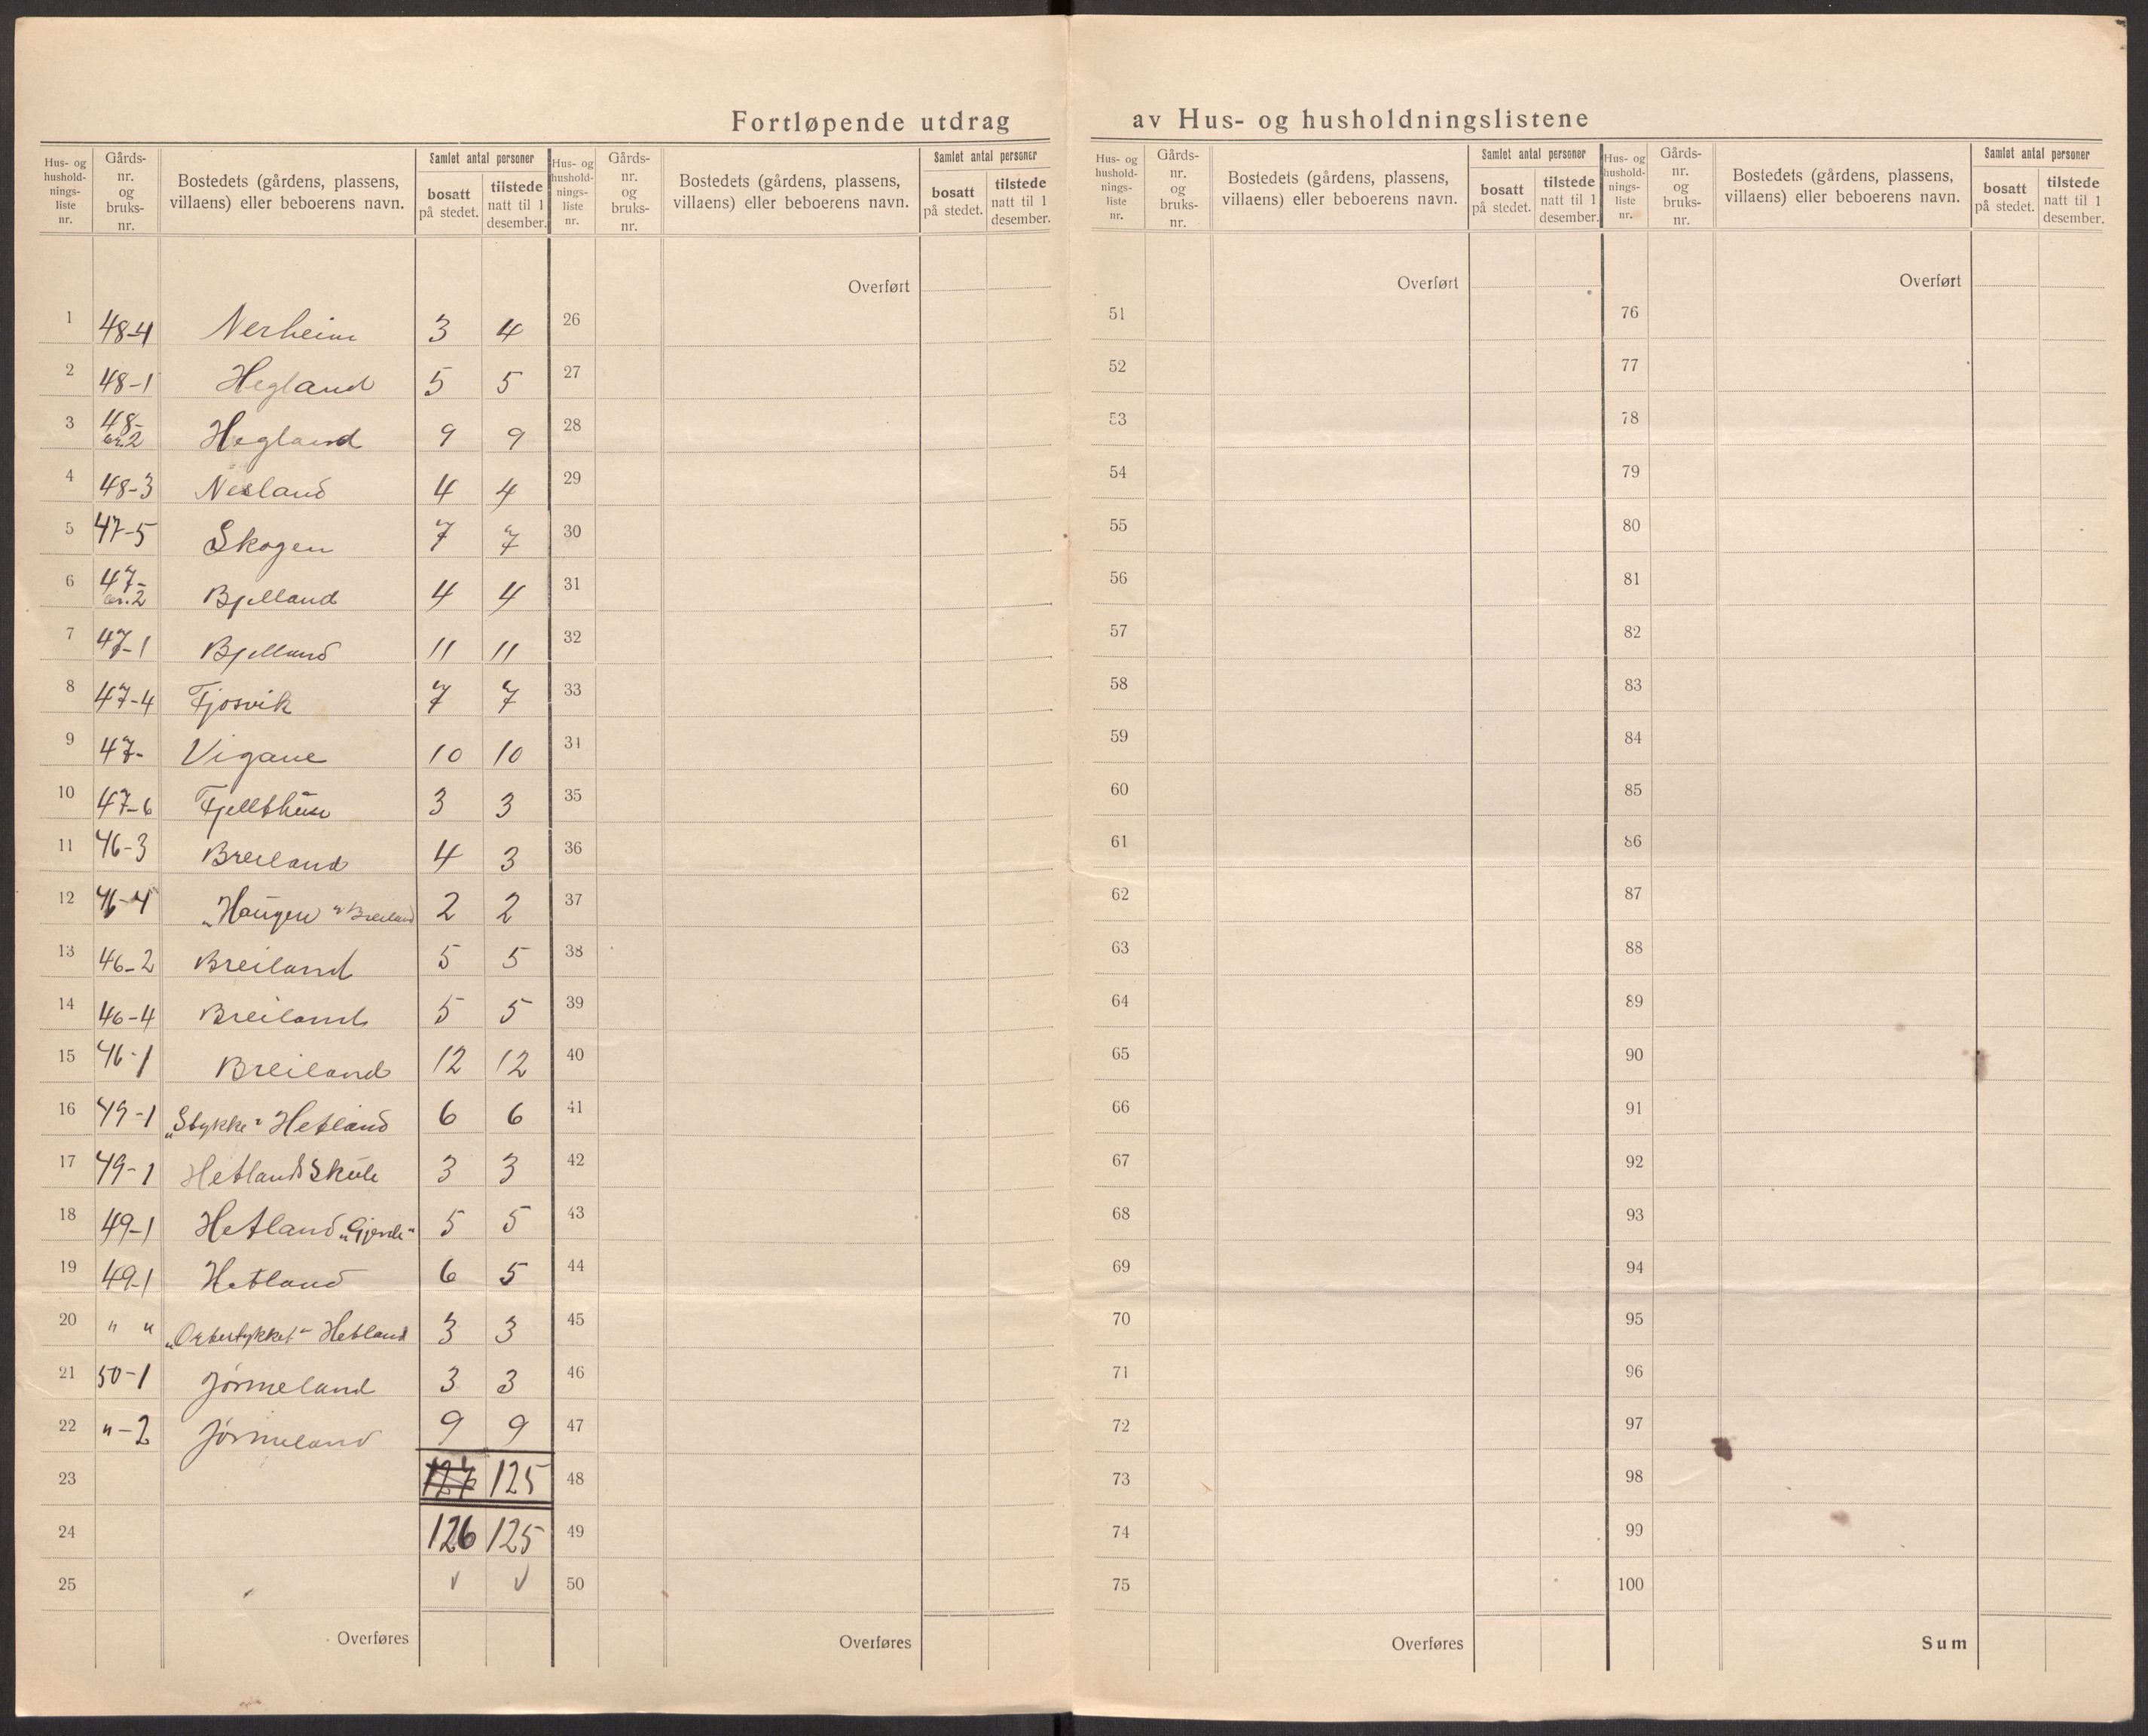 Fortløpende utdrag av Hus- og husholdningslistene
Hus- og hushold- nings- liste nr. | Gårds- nr. og bruks- nr. | Bostedets (gårdens, plassens, villaens) eller beboerens navn. | Samlet antal personer | bosatt på stedet. | tilstede natt til 1 desember.
Hus- og hushold- nings- liste nr. | Gårds- nr. og bruks- nr. | Bostedets (gårdens, plassens, villaens) eller beboerens navn. | Samlet antal personer | bosatt på stedet. | tilstede natt til 1 desember.
Hus- og hushold- nings- liste nr. | Gårds- nr. og bruks- nr. | Bostedets (gårdens, plassens, villaens) eller beboerens navn. | Samlet antal personer | bosatt på stedet. | tilstede natt til 1 desember.
Hus- og hushold- nings- liste nr. | Gårds- nr. og bruks- nr. | Bostedets (gårdens, plassens, villaens) eller beboerens navn. | Samlet antal personer | bosatt på stedet. | tilstede natt til 1 desember.
Overført Overført Overført
1 48-4 Nerheim 3 4 26 51 76
2 48-1 Hegland 5 5 27 52 77
3 48- br.2 Hegland 9 9 28 53 78
4 48-3 Nesland 4 4 29 54 79
5 47-5 Skogen 7 7 30 55 80
6 47- br.2 Bjelland 4 4 31 56 81
7 47-1 Bjelland 11 11 32 57 82
8 47-4 Fjosvik 7 7 33 58 83
9 47- Vigane 10 10 34 59 84
10 47-6 3 3 35 60 85
11 46-3 Breiland 4 3 36 61 86
12 46-4 „Haugen" Breiland 2 2 37 62 87
13 46-2 Breiland 5 5 38 63 88
14 46-4 Breiland 5 5 39 64 89
15 46-1 Breiland 12 12 40 65 90
16 49-1 „Stykke" Hetland 6 6 41 66 91
17 49-1 Hetland Skule 3 3 42 67 92
18 49-1 Hetland „Gjerde" 5 5 43 68 93
19 49-1 Hetland 6 5 44 69 94
20 " " Hetland 3 3 45 70 95
21 50-1 Jørmeland 3 3 46 71 96
22 "-2 Jørmeland 9 9 47 72 97
23 127 125 48 73 98
24 126 125 49 74 99
25 √ √ 50 75 100
Overføres Overføres Overføres Sum